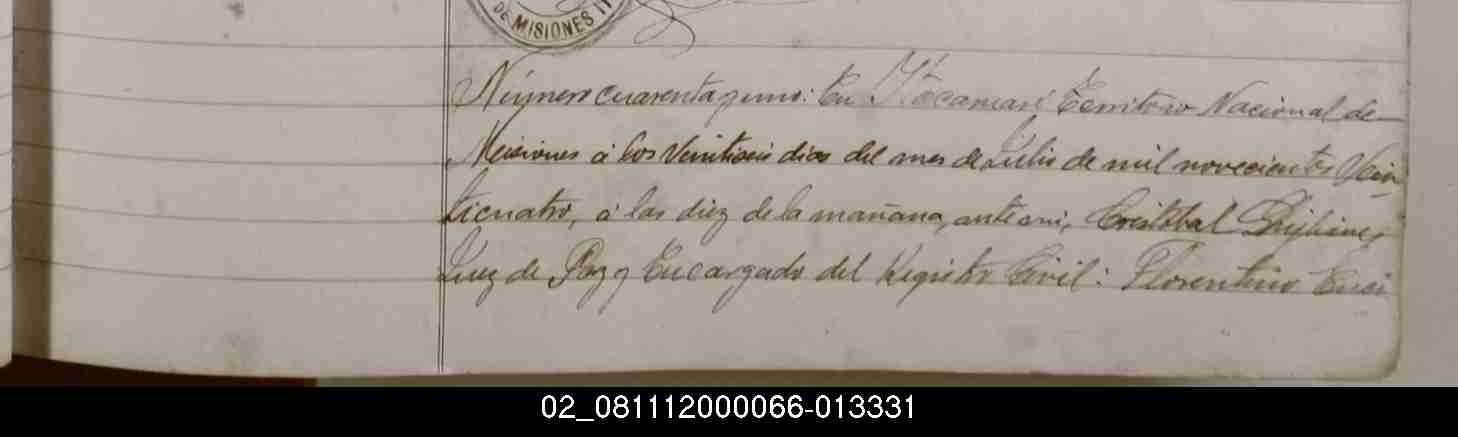 DE MISIONES
Número cuarenta y uno: En Itacaruaré Territorio Nacional de
Misiones á los veintiseis dias del mes de Julio de mil novecientos vein
ticuatro, á las diez de la mañana, ante mi, Cristobal
Juez de Paz y Encargado del Registro Civil: Florentino
02_081112000066-013331